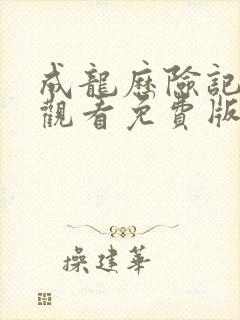 成龍歷險記
觀看免費版
操建華